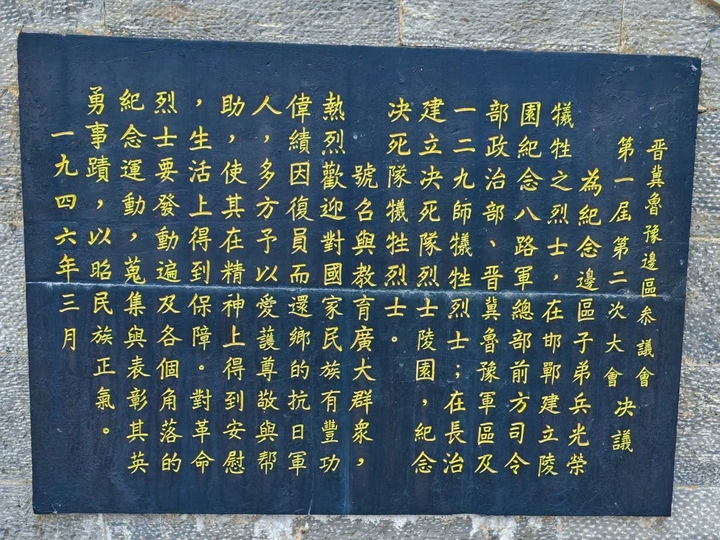 晋冀魯豫邊區参議會
第一屆第二次大會决議
為紀念邊區子弟兵光榮
犧牲之烈士，在邯鄲建立陵
園紀念八路軍總部前方司令
部政治部、晋冀魯豫軍區及
一二九師犧牲烈士；在長治
建立决死隊烈士陵園，紀念
决死隊犧牲烈士。
號召與教育廣大群衆，
熱烈歡迎對國家民族有豐功
偉績因復員而還鄉的抗日軍
人，多方予以愛護尊敬與帮
助，使其在精神上得到安慰
，生活上得到保障。對革命
烈士要發動遍及各個角落的
紀念運動，蒐集與表彰其英
勇事蹟，以昭民族正氣。
一九四六年三月